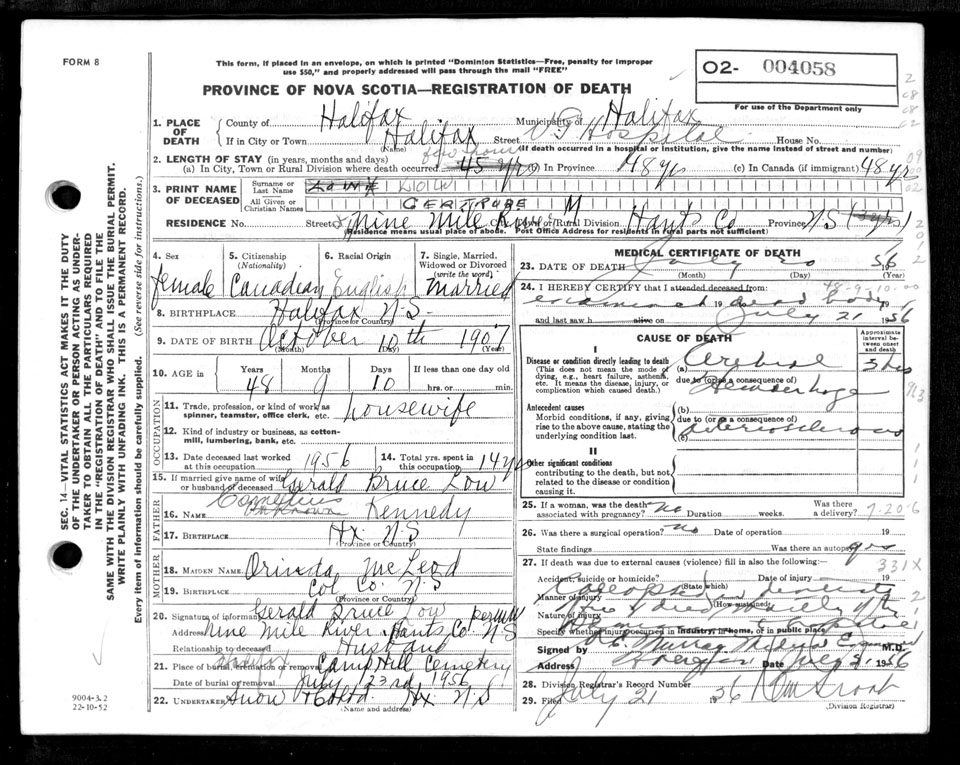 FORM 8
This form, if placed in an envelope, on which is printed "Dominion Statistics—Free, penalty for improper
use $50," and properly addressed will pass through the mail "FREE"
02- 004058
For use of the Department only
PROVINCE OF NOVA SCOTIA—REGISTRATION OF DEATH
1. PLACE OF DEATH County of Halifax Municipality of Halifax
If in City or Town Halifax Street V G Hospital House No.
(Name) (If death occurred in a hospital or institution, give the name instead of street and number)
2. LENGTH OF STAY (in years, months and days)
(a) In City, Town or Rural Division where death occurred few hours 45 yrs (b) In Province 48 yrs (c) In Canada (if immigrant) 48 yrs
3. PRINT NAME OF DECEASED Surname or Last Name LOW
All Given or Christian Names GERTRUDE M
RESIDENCE No. Street Nine Mile River City, Town or Rural Division Hants Co Province N.S (3 yrs)
Residence means usual place of abode. Post Office Address for residents in rural parts not sufficient)
4. Sex female
5. Citizenship (Nationality) Canadian
6. Racial Origin English
7. Single, Married, Widowed or Divorced (write the word) Married
8. BIRTHPLACE Halifax N.S.
(Province or Country)
9. DATE OF BIRTH October 10th 1907
(Month) (Day) (Year)
10. AGE in Years 48 Months 9 Days 10 If less than one day old hrs. or min.
OCCUPATION
11. Trade, profession, or kind of work as spinner, teamster, office clerk, etc. housewife
12. Kind of industry or business, as cotton-mill, lumbering, bank, etc.
13. Date deceased last worked at this occupation 1956 14. Total yrs. spent in this occupation 14 yrs
15. If married give name of wife or husband of deceased Gerald Bruce Low
FATHER
16. NAME Cornelius Unknown Kennedy
17. BIRTHPLACE Hx N.S
(Province or Country)
MOTHER
18. MAIDEN NAME Orinda McLeod
19. BIRTHPLACE Col. Co. N.S
(Province or Country)
20. Signature of informant Gerald Bruce Low
Address Nine Mile River Hants Co. N.S
Relationship to deceased Husband
21. Place of burial, cremation or removal Camp Hill Cemetery
Date of burial or removal July 23rd, 1956
22. UNDERTAKER Snow Hx. N.S
(Name and address)
MEDICAL CERTIFICATE OF DEATH
23. DATE OF DEATH July 20 56
(Month) (Day) (Year)
24. I HEREBY CERTIFY that I attended deceased from:
examined 19 dead body
and last saw h alive on July 21 1956
CAUSE OF DEATH
Approximate interval between onset and death
I
Disease or condition directly leading to death
(This does not mean the mode of dying, e.g., heart failure, asthenia, etc. It means the disease, injury, or complication which caused death.)
(a) Cerebral
due to (or as a consequence of) Hemorrhage
Antecedent causes
Morbid conditions, if any, giving rise to the above cause, stating the underlying condition last.
(b)
due to (or as a consequence of)
(c) arteriosclerosis
II
Other significant conditions
contributing to the death, but not related to the disease or condition causing it.
25. If a woman, was the death associated with pregnancy? no Duration weeks. Was there a delivery? 7-20-6
26. Was there a surgical operation? no Date of operation 19
State findings Was there an autopsy? yes
27. If death was due to external causes (violence) fill in also the following: 331X
Accident, suicide or homicide? Date of injury 19
(State which)
Manner of injury
(How sustained)
Nature of injury
Specify whether injury occurred in industry, in home, or in public place
Signed by M.D.
Address Date July 21 1956
28. Division Registrar's Record Number
29. Filed July 21 1956
(Division Registrar)
SEC. 14—VITAL STATISTICS ACT MAKES IT THE DUTY
OF THE UNDERTAKER OR PERSON ACTING AS UNDER-
TAKER TO OBTAIN ALL THE PARTICULARS REQUIRED
IN THE "REGISTRATION OF DEATH" AND TO FILE THE
SAME WITH THE DIVISION REGISTRAR WHO SHALL ISSUE THE BURIAL PERMIT.
WRITE PLAINLY WITH UNFADING INK. THIS IS A PERMANENT RECORD.
Every item of information should be carefully supplied. (See reverse side for instructions.)
9004-3.2
22-10-52